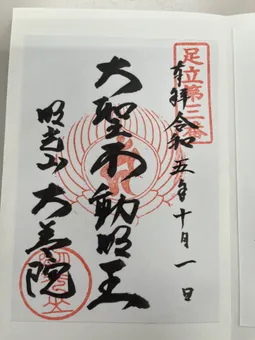 足立第三番
奉拝 令和五年十月一日
大聖不動明王
明王山 大善院